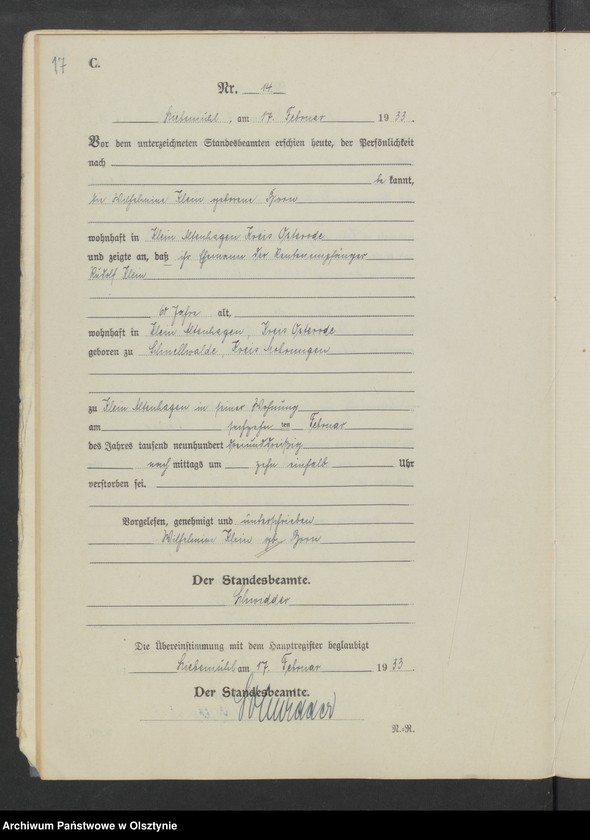 17
C.
Nr. 14.
Liebemühl, am 17. Februar 1933.
Vor dem unterzeichneten Standesbeamten erschien heute, der Persönlichkeit
nach
be kannt,
die Wilhelmine Klein geborene
wohnhaft in Klein Altenhagen Kreis Osterode
und zeigte an, daß ihr Ehemann der Rentenempfänger
Rudolf Klein
60 Jahre alt,
wohnhaft in Klein Altenhagen, Kreis Osterode
geboren zu Schnellwalde, Kreis Mohrungen
zu Klein Altenhagen in seiner Wohnung
am sechzehn ten Februar
des Jahres tausend neunhundert dreiunddreißig
nach mittags um zehn einhalb Uhr
verstorben sei.
Vorgelesen, genehmigt und unterschrieben
Wilhelmine Klein geb.
Der Standesbeamte.
Die Übereinstimmung mit dem Hauptregister beglaubigt
Liebemühl am 17. Februar 1933.
Der Standesbeamte.
R.-R.
Archiwum Państwowe w Olsztynie